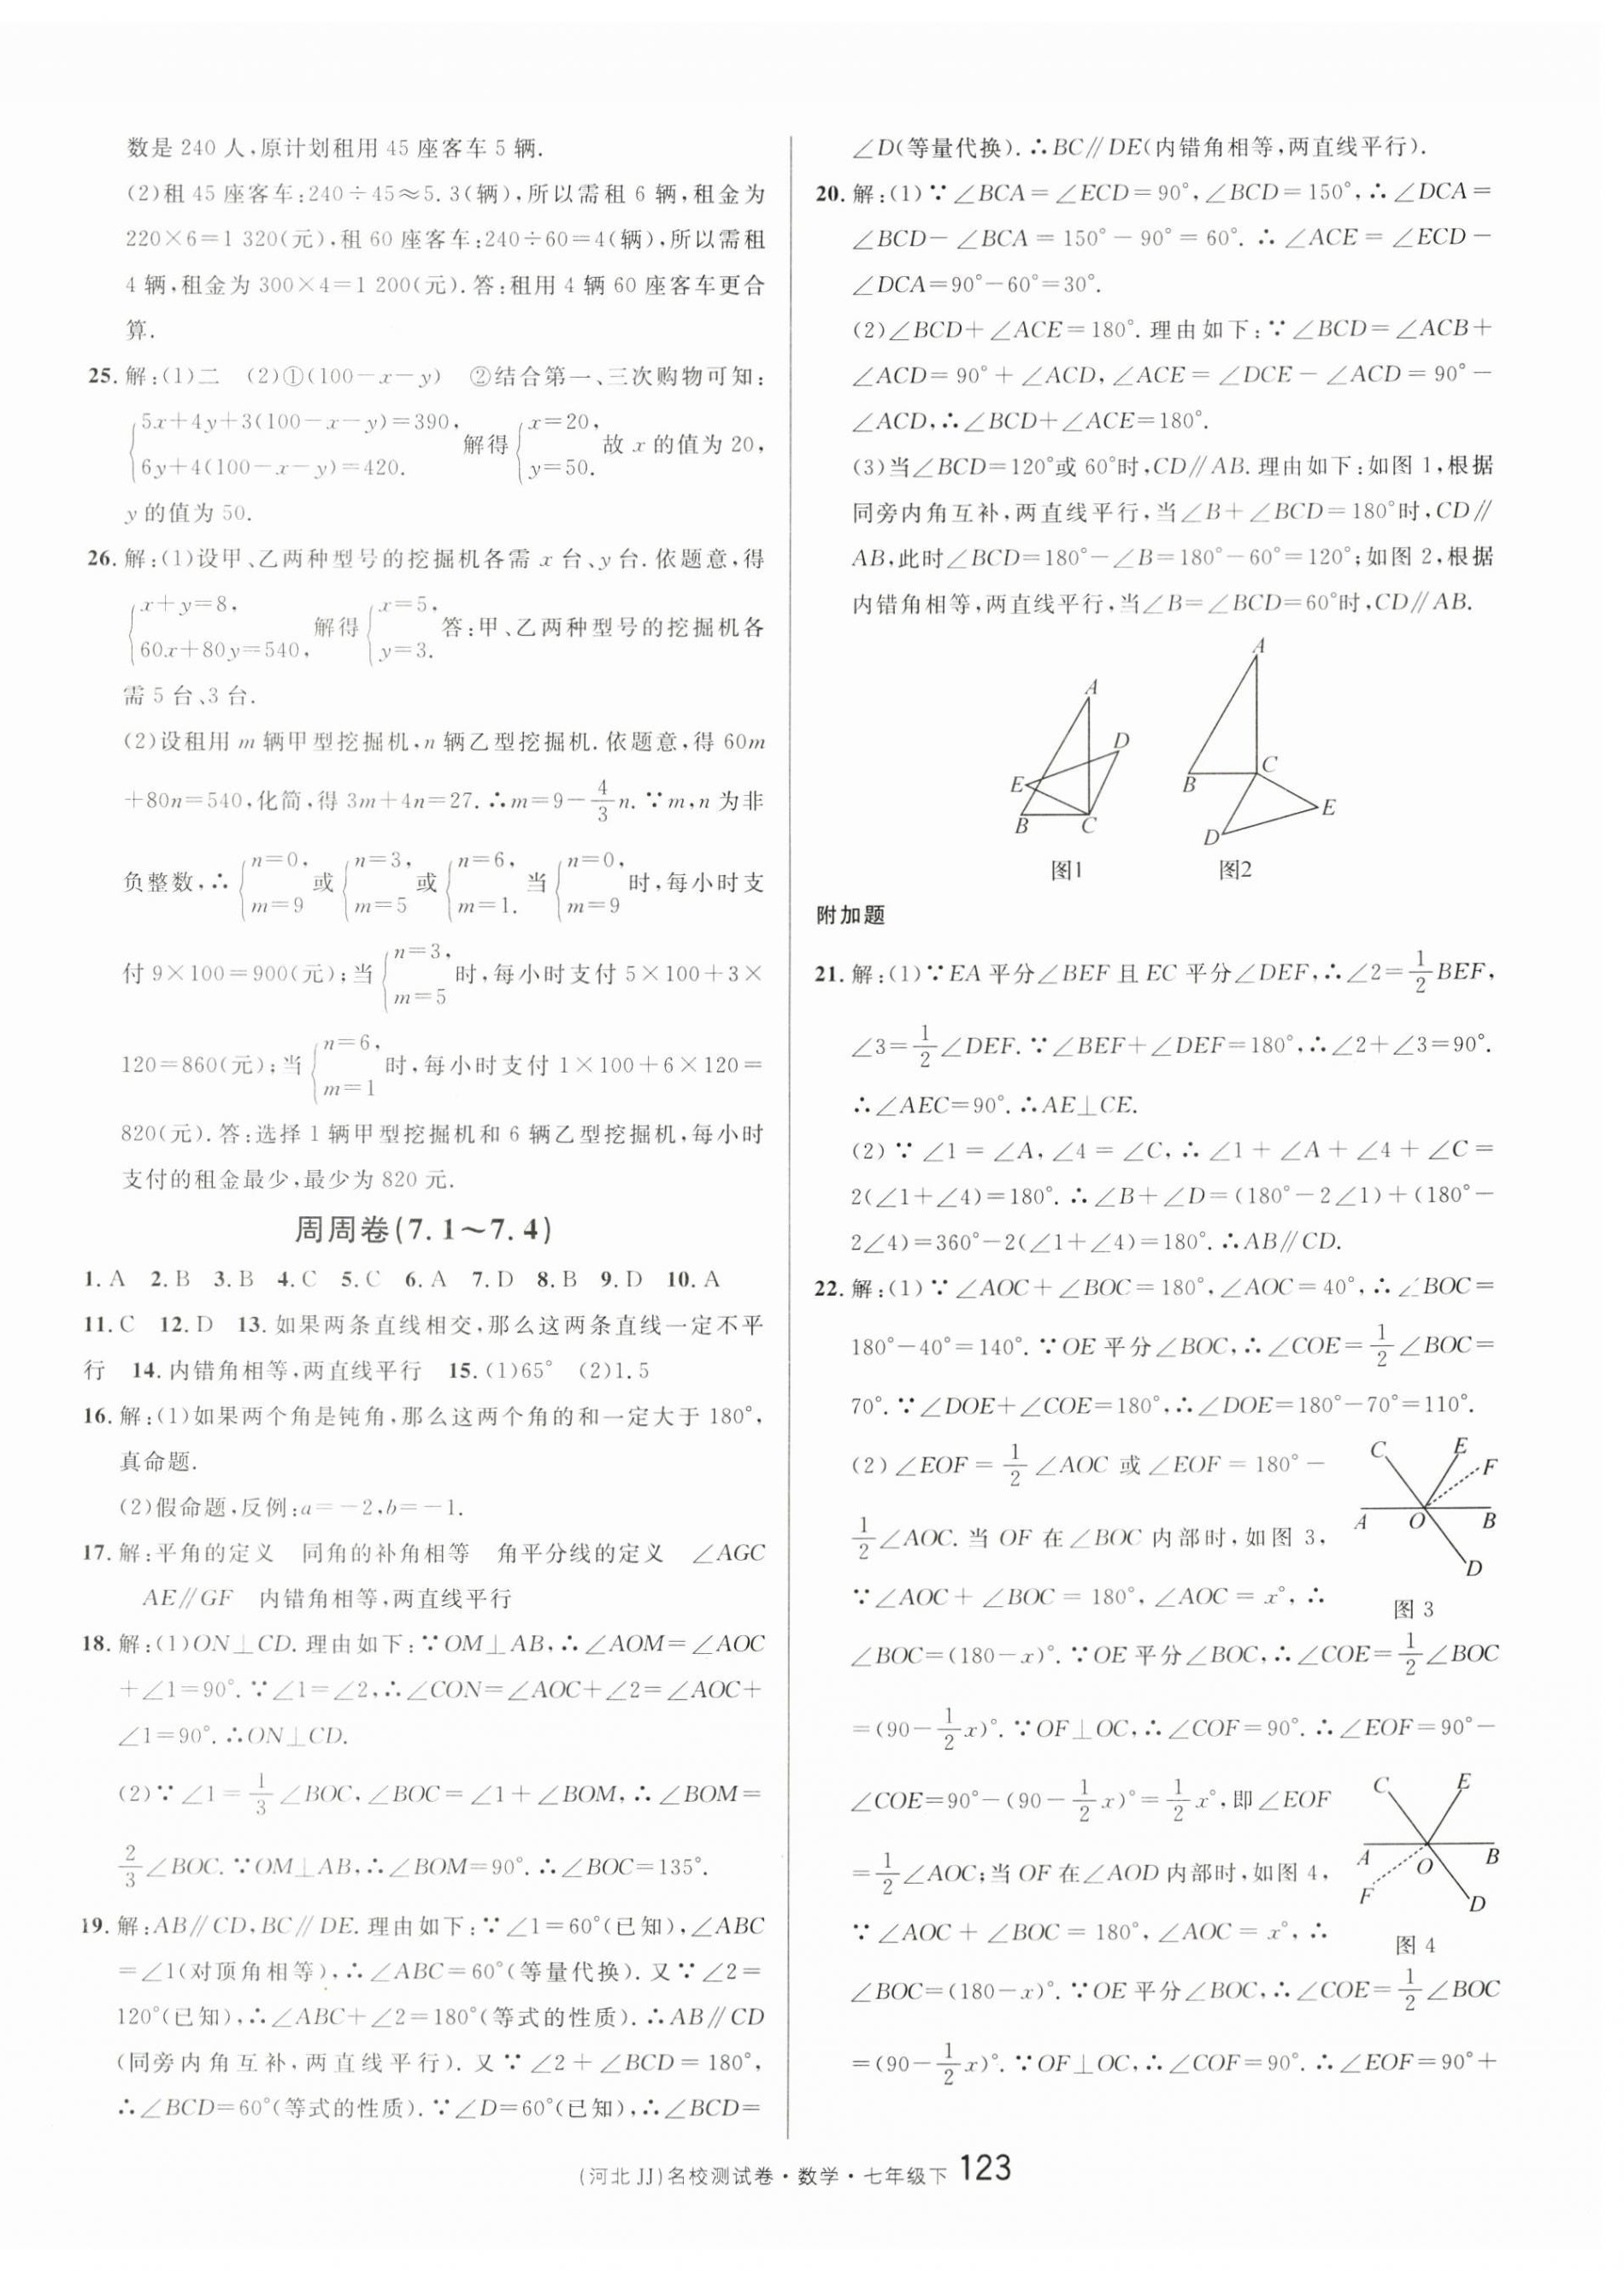 数是 240 人,原计划租用 45 座客车 5 辆.
(2)租 45 座客车:240÷45≈5.3(辆),所以需租 6 辆,租金为
220×6=1 320(元),租 60 座客车:240÷60=4(辆),所以需租
4 辆,租金为 300×4=1 200(元).答:租用 4 辆 60 座客车更合
算.
25. 解:(1)二 (2)①(100-x-y) ②结合第一、三次购物可知:
{5x+4y+3(100-x-y)=390, 6y+4(100-x-y)=420. 解得{x=20, y=50. 故 x 的值为 20,
y 的值为 50.
26. 解:(1)设甲、乙两种型号的挖掘机各需 x 台、y 台.依题意,得
{x+y=8, 60x+80y=540, 解得{x=5, y=3. 答:甲、乙两种型号的挖掘机各
需 5 台、3 台.
(2)设租用 m 辆甲型挖掘机,n 辆乙型挖掘机.依题意,得 60m
+80n=540,化简,得 3m+4n=27.∴m=9-4/3n.∵m,n 为非
负整数,∴{n=0, m=9 或{n=3, m=5 或{n=6, m=1. 当{n=0, m=9 时,每小时支
付 9×100=900(元);当{n=3, m=5 时,每小时支付 5×100+3×
120=860(元);当{n=6, m=1 时,每小时支付 1×100+6×120=
820(元).答:选择 1 辆甲型挖掘机和 6 辆乙型挖掘机,每小时
支付的租金最少,最少为 820 元.
周周卷(7.1～7.4)
1. A 2. B 3. B 4. C 5. C 6. A 7. D 8. B 9. D 10. A
11. C 12. D 13. 如果两条直线相交,那么这两条直线一定不平
行 14. 内错角相等,两直线平行 15. (1)65° (2)1.5
16. 解:(1)如果两个角是钝角,那么这两个角的和一定大于 180°,
真命题.
(2)假命题,反例:a=-2,b=-1.
17. 解:平角的定义 同角的补角相等 角平分线的定义 ∠AGC
AE∥GF 内错角相等,两直线平行
18. 解:(1)ON⊥CD.理由如下:∵OM⊥AB,∴∠AOM=∠AOC
+∠1=90°.∵∠1=∠2,∴∠CON=∠AOC+∠2=∠AOC+
∠1=90°.∴ON⊥CD.
(2)∵∠1=1/3∠BOC,∠BOC=∠1+∠BOM,∴∠BOM=
2/3∠BOC.∵OM⊥AB,∴∠BOM=90°.∴∠BOC=135°.
19. 解:AB∥CD,BC∥DE.理由如下:∵∠1=60°(已知),∠ABC
=∠1(对顶角相等),∴∠ABC=60°(等量代换).又∵∠2=
120°(已知),∴∠ABC+∠2=180°(等式的性质).∴AB∥CD
(同旁内角互补,两直线平行).又∵∠2+∠BCD=180°,
∴∠BCD=60°(等式的性质).∵∠D=60°(已知),∴∠BCD=
∠D(等量代换).∴BC∥DE(内错角相等,两直线平行).
20. 解:(1)∵∠BCA=∠ECD=90°,∠BCD=150°,∴∠DCA=
∠BCD-∠BCA=150°-90°=60°.∴∠ACE=∠ECD-
∠DCA=90°-60°=30°.
(2)∠BCD+∠ACE=180°.理由如下:∵∠BCD=∠ACB+
∠ACD=90°+∠ACD,∠ACE=∠DCE-∠ACD=90°-
∠ACD,∴∠BCD+∠ACE=180°.
(3)当∠BCD=120°或 60°时,CD∥AB.理由如下:如图 1,根据
同旁内角互补,两直线平行,当∠B+∠BCD=180°时,CD∥
AB,此时∠BCD=180°-∠B=180°-60°=120°;如图 2,根据
内错角相等,两直线平行,当∠B=∠BCD=60°时,CD∥AB.
A D E B C
图1
A B C E D
图2
附加题
21. 解:(1)∵EA 平分∠BEF 且 EC 平分∠DEF,∴∠2=1/2BEF,
∠3=1/2∠DEF.∵∠BEF+∠DEF=180°,∴∠2+∠3=90°.
∴∠AEC=90°.∴AE⊥CE.
(2)∵∠1=∠A,∠4=∠C,∴∠1+∠A+∠4+∠C=
2(∠1+∠4)=180°.∴∠B+∠D=(180°-2∠1)+(180°-
2∠4)=360°-2(∠1+∠4)=180°.∴AB∥CD.
22. 解:(1)∵∠AOC+∠BOC=180°,∠AOC=40°,∴∠BOC=
180°-40°=140°.∵OE 平分∠BOC,∴∠COE=1/2∠BOC=
70°.∵∠DOE+∠COE=180°,∴∠DOE=180°-70°=110°.
(2)∠EOF=1/2∠AOC 或∠EOF=180°-
1/2∠AOC.当 OF 在∠BOC 内部时,如图 3,
∵∠AOC+∠BOC=180°,∠AOC=x°,∴
C E F A O B D
图 3
∠BOC=(180-x)°.∵OE 平分∠BOC,∴∠COE=1/2∠BOC
=(90-1/2x)°.∵OF⊥OC,∴∠COF=90°.∴∠EOF=90°-
∠COE=90°-(90-1/2x)°=1/2x°,即∠EOF
=1/2∠AOC;当 OF 在∠AOD 内部时,如图 4,
∵∠AOC+∠BOC=180°,∠AOC=x°,∴
C E A O B F D
图 4
∠BOC=(180-x)°.∵OE 平分∠BOC,∴∠COE=1/2∠BOC
=(90-1/2x)°.∵OF⊥OC,∴∠COF=90°.∴∠EOF=90°+
(河北 JJ)名校测试卷·数学·七年级下 123